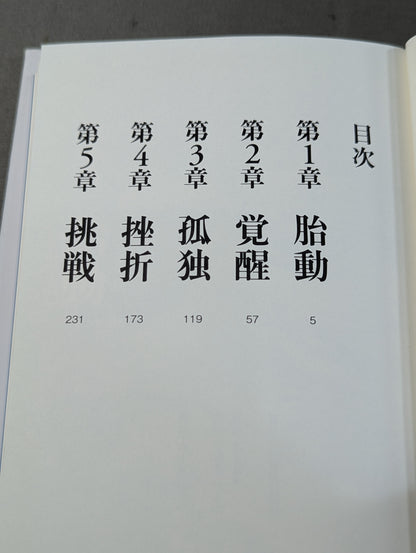 目次
第1章 胎動 5
第2章 覚醒 57
第3章 孤独 119
第4章 挫折 173
第5章 挑戦 231